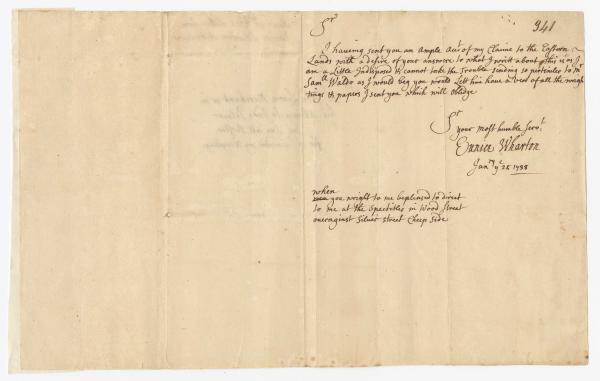 Sr
341
I having sent you an Ample Acct of my Claime to the Eastorn
Lands with a desire of your answere to what I writt about this is as I
am a Little Indisposed & cannot take the Trouble sending so pertenler to Mr
Samll Waldo as I would beg you would Lett him have a veiw of all the wrigh
tings & papers I sent you which will oblidge
Sr
your most humble Servt
Eunice Wharton
Janry ye 25 1738
when
you wright to me bepleased to direct
to me at the Spectkles in Wood street
overaginst Silver street Cheep Side